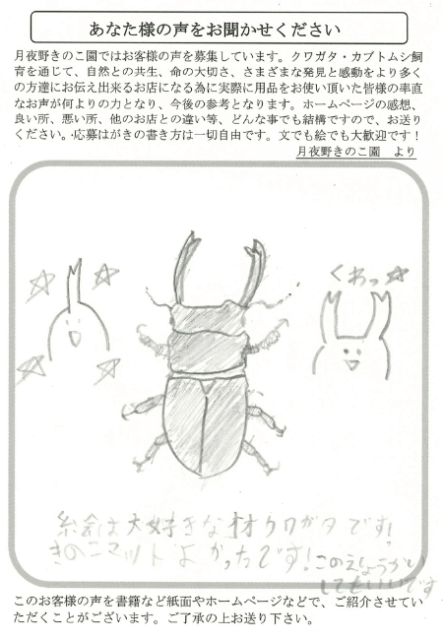 あなた様の声をお聞かせください
月夜野きのこ園ではお客様の声を募集しています。クワガタ・カブトムシ飼
育を通じて、自然との共生、命の大切さ、さまざまな発見と感動をより多く
の方達にお伝え出来るお店になる為に実際に用品をお使い頂いた皆様の率直
なお声が何よりの力となり、今後の参考となります。ホームページの感想、
良い所、悪い所、他のお店との違い等、どんな事でも結構ですので、お送り
ください。応募はがきの書き方は一切自由です。文でも絵でも大歓迎です！
月夜野きのこ園　より
くわっ☆
絵は大好きなオオクワガタです！
きのこマットよかったです！このえしょうかい
してもいいです
このお客様の声を書籍など紙面やホームページなどで、ご紹介させてい
ただくことがございます。ご了承の上お送り下さい。